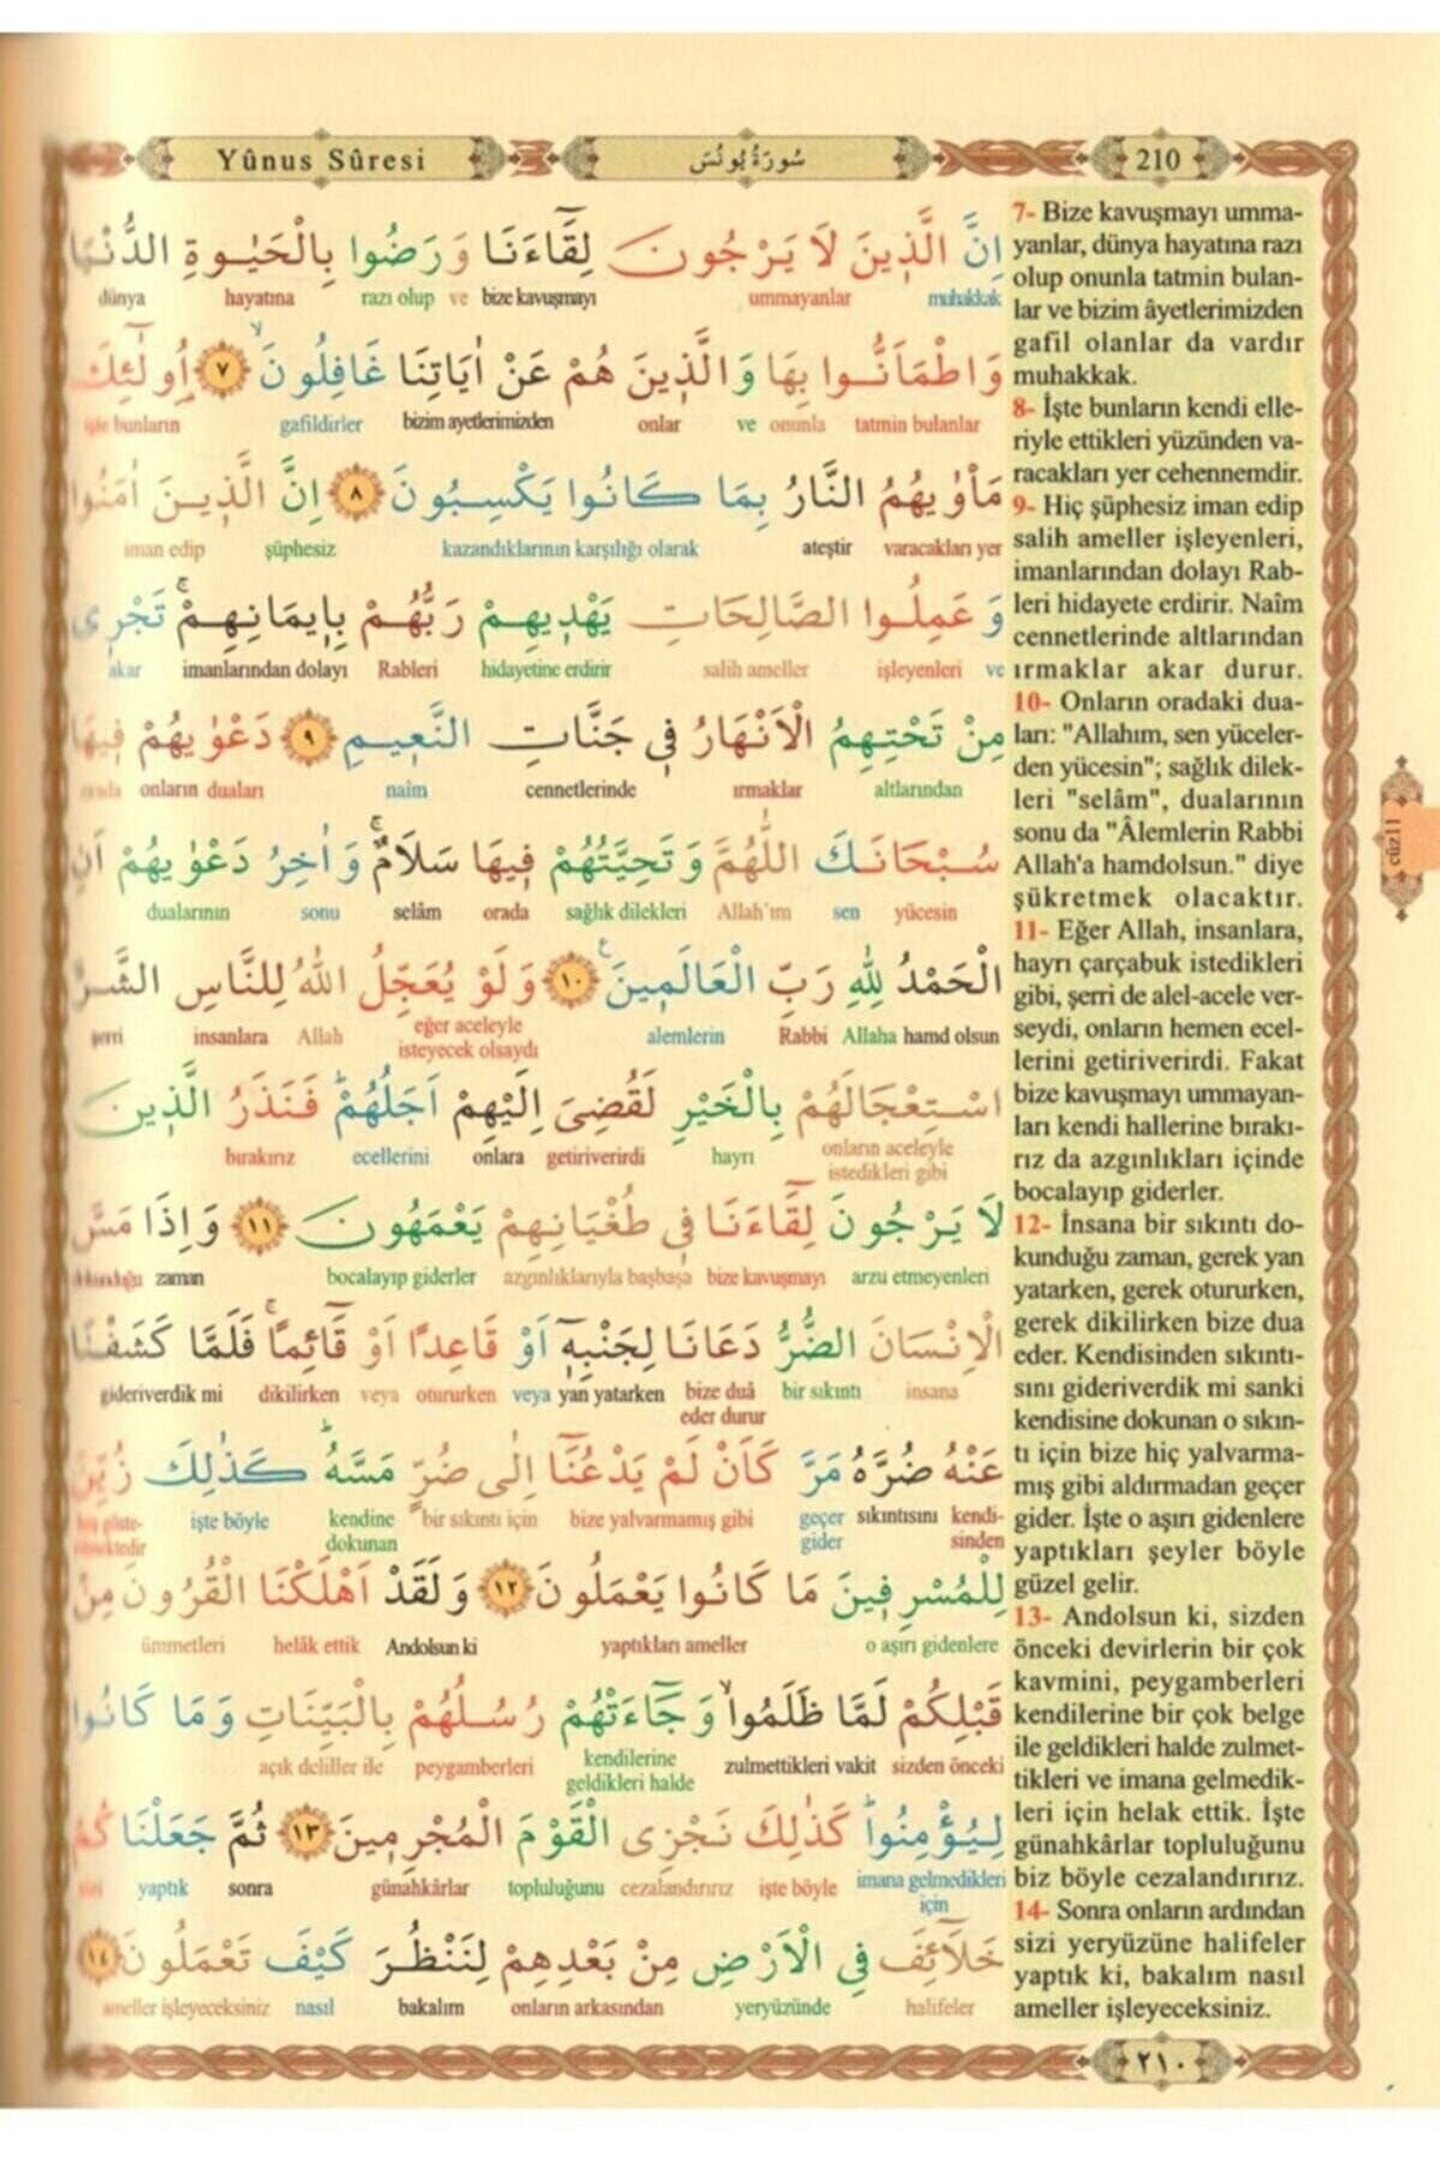 Yûnus Sûresi
سُورَةُ يُونُسَ
210
اِنَّ الَّذ۪ينَ لَا يَرْجُونَ لِقَٓاءَنَا وَرَضُوا بِالْحَيٰوةِ الدُّنْيَا
muhakkak ummayanlar bize kavuşmayı ve razı olup hayatına dünya
وَاطْمَاَنُّوا بِهَا وَالَّذ۪ينَ هُمْ عَنْ اٰيَاتِنَا غَافِلُونَۙ ﴿٧﴾ اُو۬لٰٓئِكَ
tatmin bulanlar onunla ve onlar bizim ayetlerimizden gafildirler işte bunların
مَأْوٰيهُمُ النَّارُ بِمَا كَانُوا يَكْسِبُونَ ﴿٨﴾ اِنَّ الَّذ۪ينَ اٰمَنُوا
varacakları yer ateştir kazandıklarının karşılığı olarak şüphesiz iman edip
وَعَمِلُوا الصَّالِحَاتِ يَهْد۪يهِمْ رَبُّهُمْ بِا۪يمَانِهِمْۚ تَجْر۪ي
ve işleyenleri salih ameller hidayetine erdirir Rableri imanlarından dolayı akar
مِنْ تَحْتِهِمُ الْاَنْهَارُ ف۪ي جَنَّاتِ النَّع۪يمِ ﴿٩﴾ دَعْوٰيهُمْ ف۪يهَا
altlarından ırmaklar cennetlerinde naîm onların duaları orada
سُبْحَانَكَ اللّٰهُمَّ وَتَحِيَّتُهُمْ ف۪يهَا سَلَامٌۚ وَاٰخِرُ دَعْوٰيهُمْ اَنِ
yücesin sen Allah'ım sağlık dilekleri orada selâm sonu dualarının
الْحَمْدُ لِلّٰهِ رَبِّ الْعَالَم۪ينَ۟ ﴿١٠﴾ وَلَوْ يُعَجِّلُ اللّٰهُ لِلنَّاسِ الشَّرَّ
hamd olsun Allaha Rabbi alemlerin eğer aceleyle isteyecek olsaydı Allah insanlara şerri
اسْتِعْجَالَهُمْ بِالْخَيْرِ لَقُضِيَ اِلَيْهِمْ اَجَلُهُمْۜ فَنَذَرُ الَّذ۪ينَ
onların aceleyle istedikleri gibi hayrı getiriverirdi onlara ecellerini bırakırız
لَا يَرْجُونَ لِقَٓاءَنَا ف۪ي طُغْيَانِهِمْ يَعْمَهُونَ ﴿١١﴾ وَاِذَا مَسَّ
arzu etmeyenleri bize kavuşmayı azgınlıklarıyla başbaşa bocalayıp giderler zaman
الْاِنْسَانَ الضُّرُّ دَعَانَا لِجَنْبِه۪ٓ اَوْ قَاعِدًا اَوْ قَٓائِمًاۚ فَلَمَّا كَشَفْنَا
insana bir sıkıntı bize duâ eder durur yan yatarken veya otururken veya dikilirken gideriverdik mi
عَنْهُ ضُرَّهُ مَرَّ كَاَنْ لَمْ يَدْعُنَٓا اِلٰى ضُرٍّ مَسَّهُۜ كَذٰلِكَ زُيِّنَ
kendi-sinden sıkıntısını geçer gider bize yalvarmamış gibi bir sıkıntı için kendine dokunan işte böyle
لِلْمُسْرِف۪ينَ مَا كَانُوا يَعْمَلُونَ ﴿١٢﴾ وَلَقَدْ اَهْلَكْنَا الْقُرُونَ مِنْ
o aşırı gidenlere yaptıkları ameller Andolsun ki helâk ettik ümmetleri
قَبْلِكُمْ لَمَّا ظَلَمُواۙ وَجَٓاءَتْهُمْ رُسُلُهُمْ بِالْبَيِّنَاتِ وَمَا كَانُوا
sizden önceki zulmettikleri vakit kendilerine geldikleri halde peygamberleri açık deliller ile
لِيُؤْمِنُواۜ كَذٰلِكَ نَجْزِي الْقَوْمَ الْمُجْرِم۪ينَ ﴿١٣﴾ ثُمَّ جَعَلْنَاكُمْ
imana gelmedikleri için işte böyle cezalandırırız topluluğunu günahkârlar sonra yaptık sizi
خَلَٓائِفَ فِي الْاَرْضِ مِنْ بَعْدِهِمْ لِنَنْظُرَ كَيْفَ تَعْمَلُونَ ﴿١٤﴾
halifeler yeryüzünde onların arkasından bakalım nasıl ameller işleyeceksiniz
7- Bize kavuşmayı umma-
yanlar, dünya hayatına razı
olup onunla tatmin bulan-
lar ve bizim âyetlerimizden
gafil olanlar da vardır
muhakkak.
8- İşte bunların kendi elle-
riyle ettikleri yüzünden va-
racakları yer cehennemdir.
9- Hiç şüphesiz iman edip
salih ameller işleyenleri,
imanlarından dolayı Rab-
leri hidayete erdirir. Naîm
cennetlerinde altlarından
ırmaklar akar durur.
10- Onların oradaki dua-
ları: "Allahım, sen yüceler-
den yücesin"; sağlık dilek-
leri "selâm", dualarının
sonu da "Âlemlerin Rabbi
Allah'a hamdolsun." diye
şükretmek olacaktır.
11- Eğer Allah, insanlara,
hayrı çarçabuk istedikleri
gibi, şerri de alel-acele ver-
seydi, onların hemen ecel-
lerini getiriverirdi. Fakat
bize kavuşmayı ummayan-
ları kendi hallerine bırakı-
rız da azgınlıkları içinde
bocalayıp giderler.
12- İnsana bir sıkıntı do-
kunduğu zaman, gerek yan
yatarken, gerek otururken,
gerek dikilirken bize dua
eder. Kendisinden sıkıntı-
sını gideriverdik mi sanki
kendisine dokunan o sıkın-
tı için bize hiç yalvarma-
mış gibi aldırmadan geçer
gider. İşte o aşırı gidenlere
yaptıkları şeyler böyle
güzel gelir.
13- Andolsun ki, sizden
önceki devirlerin bir çok
kavmini, peygamberleri
kendilerine bir çok belge
ile geldikleri halde zulmet-
tikleri ve imana gelmedik-
leri için helak ettik. İşte
günahkârlar topluluğunu
biz böyle cezalandırırız.
14- Sonra onların ardından
sizi yeryüzüne halifeler
yaptık ki, bakalım nasıl
ameller işleyeceksiniz.
cüz11
٢١٠